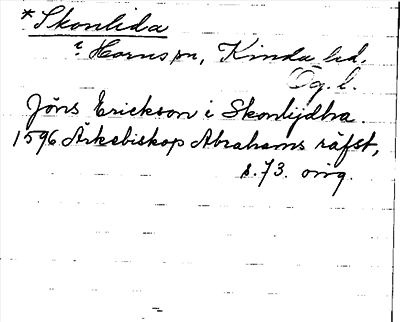 *Skonlida
i Horns sn, Kinda hd.
Ög. l.
Jöns Erickson i Skonlijdha.
1596 Ärkebiskop Abrahams räfst,
s. 73. orig.